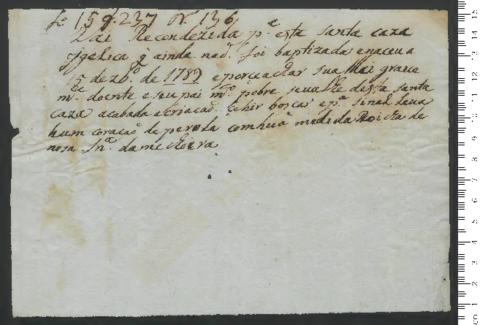 fº 159.237 Nº 136
Vai Recondezida pª esta santa caza
ojgelica q̃ ainda naõ foi baptizada e naceu a
15 de 9bº de 1789 e por se achar sua Mai grave
mᵗᵉ doente e seu pai mᵗᵒ pobre se vale desta santa
caza acabada a criacaõ tehir boscar e pª sinal leva
hum coracaõ de perola com huã medida Roicha de
nosa Snrª da